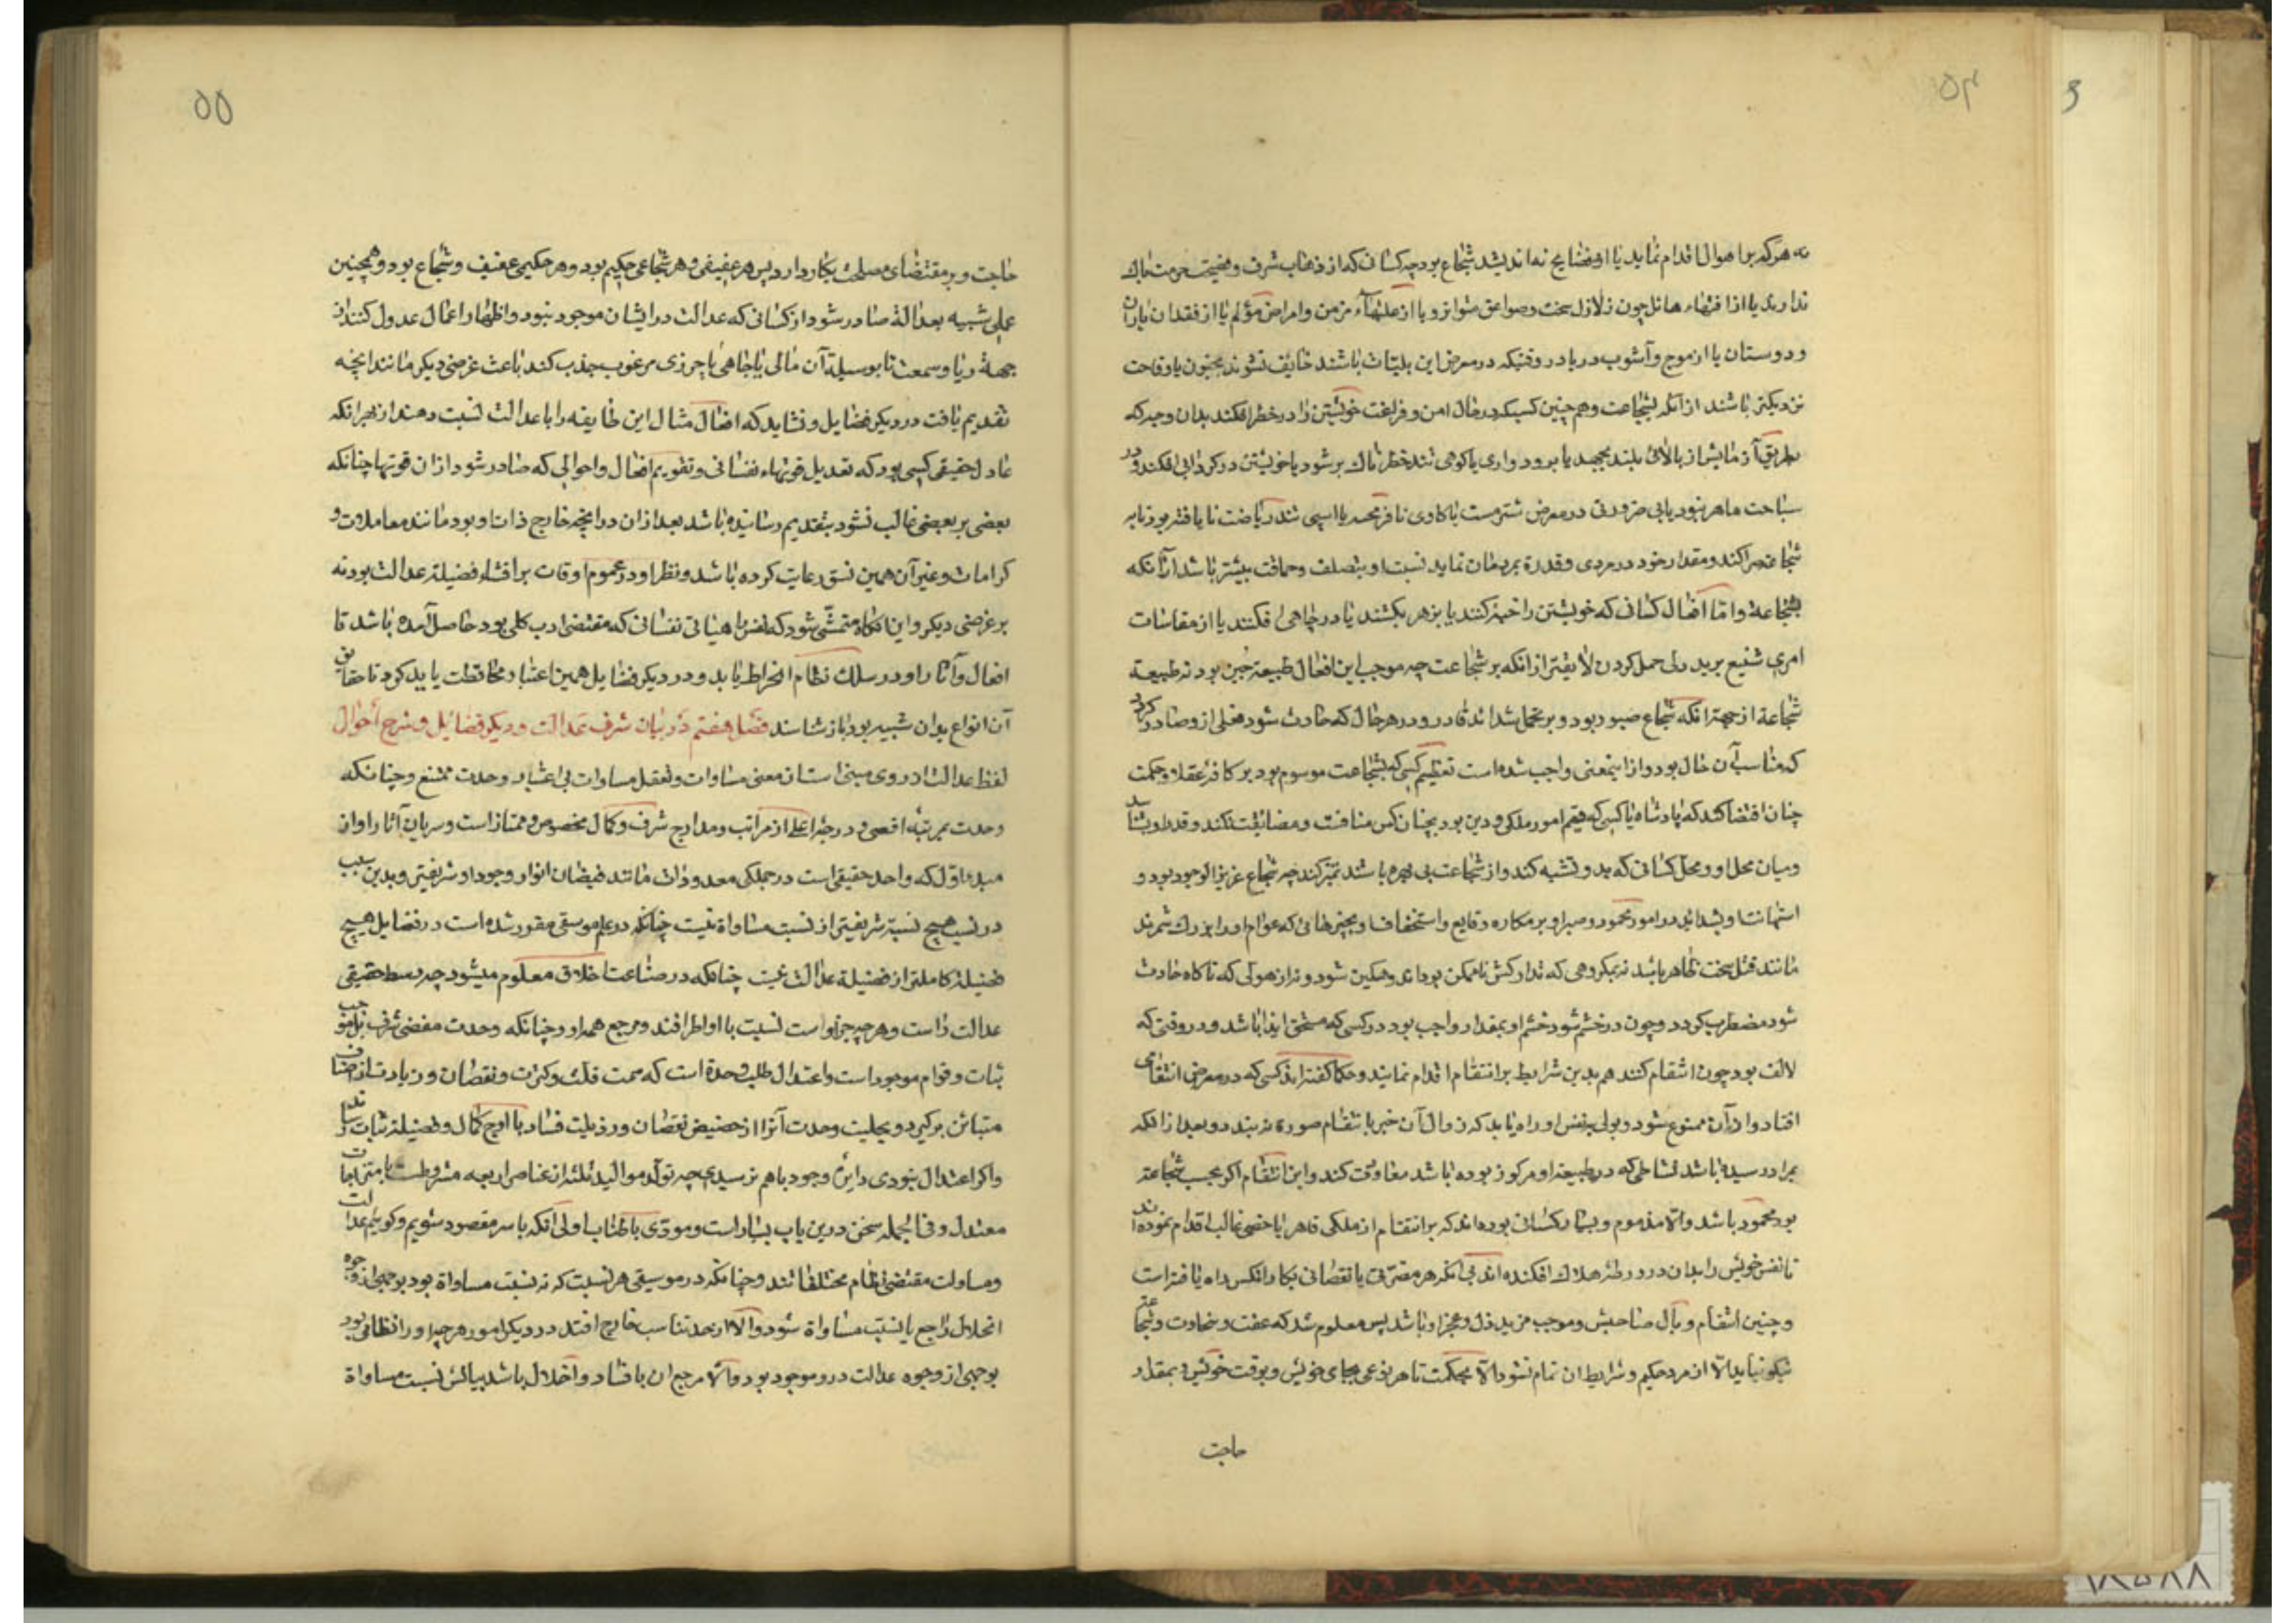 ۵۴
نه هرکه بر اهوال اقدام نماید یا از فضایح نه اندیشد شجاع بود چه کسانی که از ذهاب شرف و فضیحت حرمت باک
ندارند یا از افتهاء هائل چون زلازل سخت و صواعق متواتر و یا از علتهاء مزمن و امراض مؤلم یا از فقدان یاران
و دوستان یا از موج و آشوب دریا در وقتیکه در معرض این بلیات باشند خایف نشوند بجنون یا وقاحت
نزدیکتر باشند از آنکه بشجاعت و هم چنین کسیکه در حال امن و فراغت خویشتن را در خطر افکند بدان وجه که
بطریق آزمایش از بالائی بلند بجهد یا برود واری یا کوهی تند خطرناک بر شود یا خویشتن در گردابی افکند و در
سباحت ماهر نبود یا بی ضرورتی در معرض شتر مست یا کاوی نافرهخته یا اسپی تند ریاضت نایافته بود تا به
شجاعت مرا کند و مقدار خود در مردی و قدرة بمردمان نماید نسبت او بتصلف و حماقت بیشتر باشد از آنکه
بشجاعة و اما افعال کسانی که خویشتن را خبه کنند یا بزهر بکشند یا در چاهی افکنند یا از مقاسات
امری شنیع بر بد دلی حمل کردن لایقتر از انکه بر شجاعت چه موجب این افعال طبیعة جبن بود نه طبیعة
شجاعة از جهة انکه شجاع صبور بود و بر تحمل شداید قادر و در هر حال که حادث شود فعلی از و صادر کردد
که مناسب آن حال بود و از اینمعنی واجب شده است تعظیم کسی که بشجاعت موسوم بود بر کافه عقلا و حکمت
چنان اقتضا کند که پادشاه یا کسی که قیم امور ملکی و دین بود بچنان کس منافست و مضایقت نکند و قدر او بشناسد
و میان محل او و محل کسانی که بدو تشبه کند و از شجاعت بی بهره باشد تمیز کند چه شجاع عزیز الوجود بود و
استهانت او بشداید در امور محمود و صبر او بر مکاره وقایع و استخفاف او بچیزهائی که عوام او را بزرک شمرند
مانند قتل سخت ظاهر باشد نه بمکروهی که تدارکش ناممکن بود اندوهگین شود و نه از هولی که ناکاه حادث
شود مضطرب کردد و چون در خشم شود خشم او بمقدار واجب بود در کسی که مستحق ایذا باشد و در وقتی که
لائق بود چون انتقام کنند هم بدین شرایط بر انتقام اقدام نمایند و حکما کفته اند کسی که در معرض انتقامی
افتاد و از آن ممنوع شود ذبولی بنفس او راه یابد که زوال آن خبر بانتقام صورة نه بندد و بعد از انکه
بمراد رسیده باشد نشاطی که در طبیعة او مرکوز بوده باشد معاودت کند و این انتقام اکر بحسب شجاعة
بود محمود باشد و الا مذموم و بسیار کسانی بوده اند که بر انتقام از ملکی قاهر یا خصمی غالب اقدام نموده اند
تا نفس خویش را بدان در ورطه هلاک افکنده اند بی آنکه هر مضرتی یا نقصانی بکار آنکس راه یافته است
و چنین انتقام وبال صاحبش و موجب مزید ذل و عجز او باشد پس معلوم شد که عفت و سخاوت و شجاعة
نیکو نیاید الا از مرد حکیم و شرایط ان تمام نشود الا بحکمت تا هر نوعی بجای خویش و بوقت خویش و بمقدار
حاجت
۵۵
حاجت و بر مقتضای مصلحت بکار دارد پس هر عفیفی و هر شجاعی حکیم بود و هر حکیمی عفیف و شجاع بود و همچنین
عملی شبیه بعدالة صادر شود از کسانی که عدالت در ایشان موجود نبود و اظهار اعمال عدول کنند از
جهة ریا و سمعت تا بوسیلة آن مالی یا جاهی یا چیزی مرغوب جذب کند یا عث غرضی دیکر مانند انچه
تقدیم یافت در دیکر فضایل و نشاید که افعال مثال این طایفه را با عدالت نسبت دهند از بهر انکه
عادل حقیقی کسی بود که تعدیل قوتهاء نفسانی و تقویم افعال و احوالی که صادر شود از ان قوتها چنانکه
بعضی بر بعضی غالب نشود بتقدیم رسانیده باشد بعد از ان در انچه خارج ذات او بود مانند معاملات و
کرامات و غیر آن همین نسق رعایت کرده باشد و نظر او در عموم اوقات بر اقتناء فضیلة عدالت بود نه
بر غرضی دیکر و این انکاه متمشی شود که نفس را هیئاتی نفسانی که مقتضی ادب کلی بود حاصل آمده باشد تا
افعال و آثار او در سلک نظام انخراط یابد و در دیکر فضایل همین اعتبار محافظت باید کرد تا حقایق
آن انواع بدان شبیه بود باز شناسند فصل هفتم در بیان شرف عدالت و دیکر فضائل و شرح احوال
لفظ عدالت از روی مبنی است از معنی مساوات و تعقل مساوات بی اعتبار وحدت ممتنع و چنانکه
وحدت بمرتبه اقصی و درجه اعلی از مراتب و مدارج شرف و کمال مخصوص و ممتاز است و سریان آثار او از
مبدء اول که واحد حقیقی است در جملکی معدودات مانند فیضان انوار وجود او شریفتر و بدین سبب
در نسب هیچ نسبة شریفتر از نسبت مساواة نیست چنانکه در علم موسیقی مقرر شده است در فضایل هیچ
فضیلة کاملتر از فضیلة عدالت نیست چنانکه در صناعت اخلاق معلوم میشود چه وسط حقیقی
عدالت راست و هر چه جز او است نسبت با او اطرافند و مرجع همه او و چنانکه وحدت مقتضی شرف بل موجب
ثبات و قوام موجود است و اعتدال ظل وحدة است که سمت قلت و کثرت و نقصان و زیادت از اصناف
متباین برکیرد و بحلیت وحدت آنرا از حضیض نقصان و رذیلت فساد با اوج کمال و فضیلة ثبات رساند
و اکر اعتدال نبودی دایره وجود با هم نرسیدی چه تولد موالید ثلثه از عناصر اربعه مشروطست بامتزاجات
معتدل و فی الجمله سخن درین باب بسیار است و مودی باطناب اولی انکه با سر مقصود شویم و کوئیم عدالت
و مساوات مقتضی نظام مختلفاتند و چنانکه در موسیقی هر نسبت که نه نسبت مساواة بود بوجهی از وجوه
انحلال راجع با نسبت مساواة شود و الا از حد تناسب خارج افتد در دیکر امور هر چه او را نظامی بود
بوجهی از وجوه عدالت درو موجود بود و الا مرجع ان با فساد و اختلال باشد بیانش نسبت مساواة